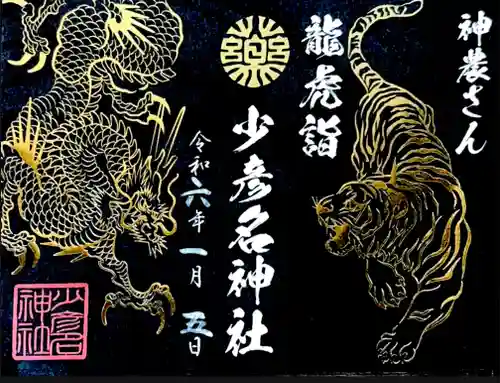 神農さん
龍虎詣
藥
少彦名神社
令和六年一月五日
少彦名
神社